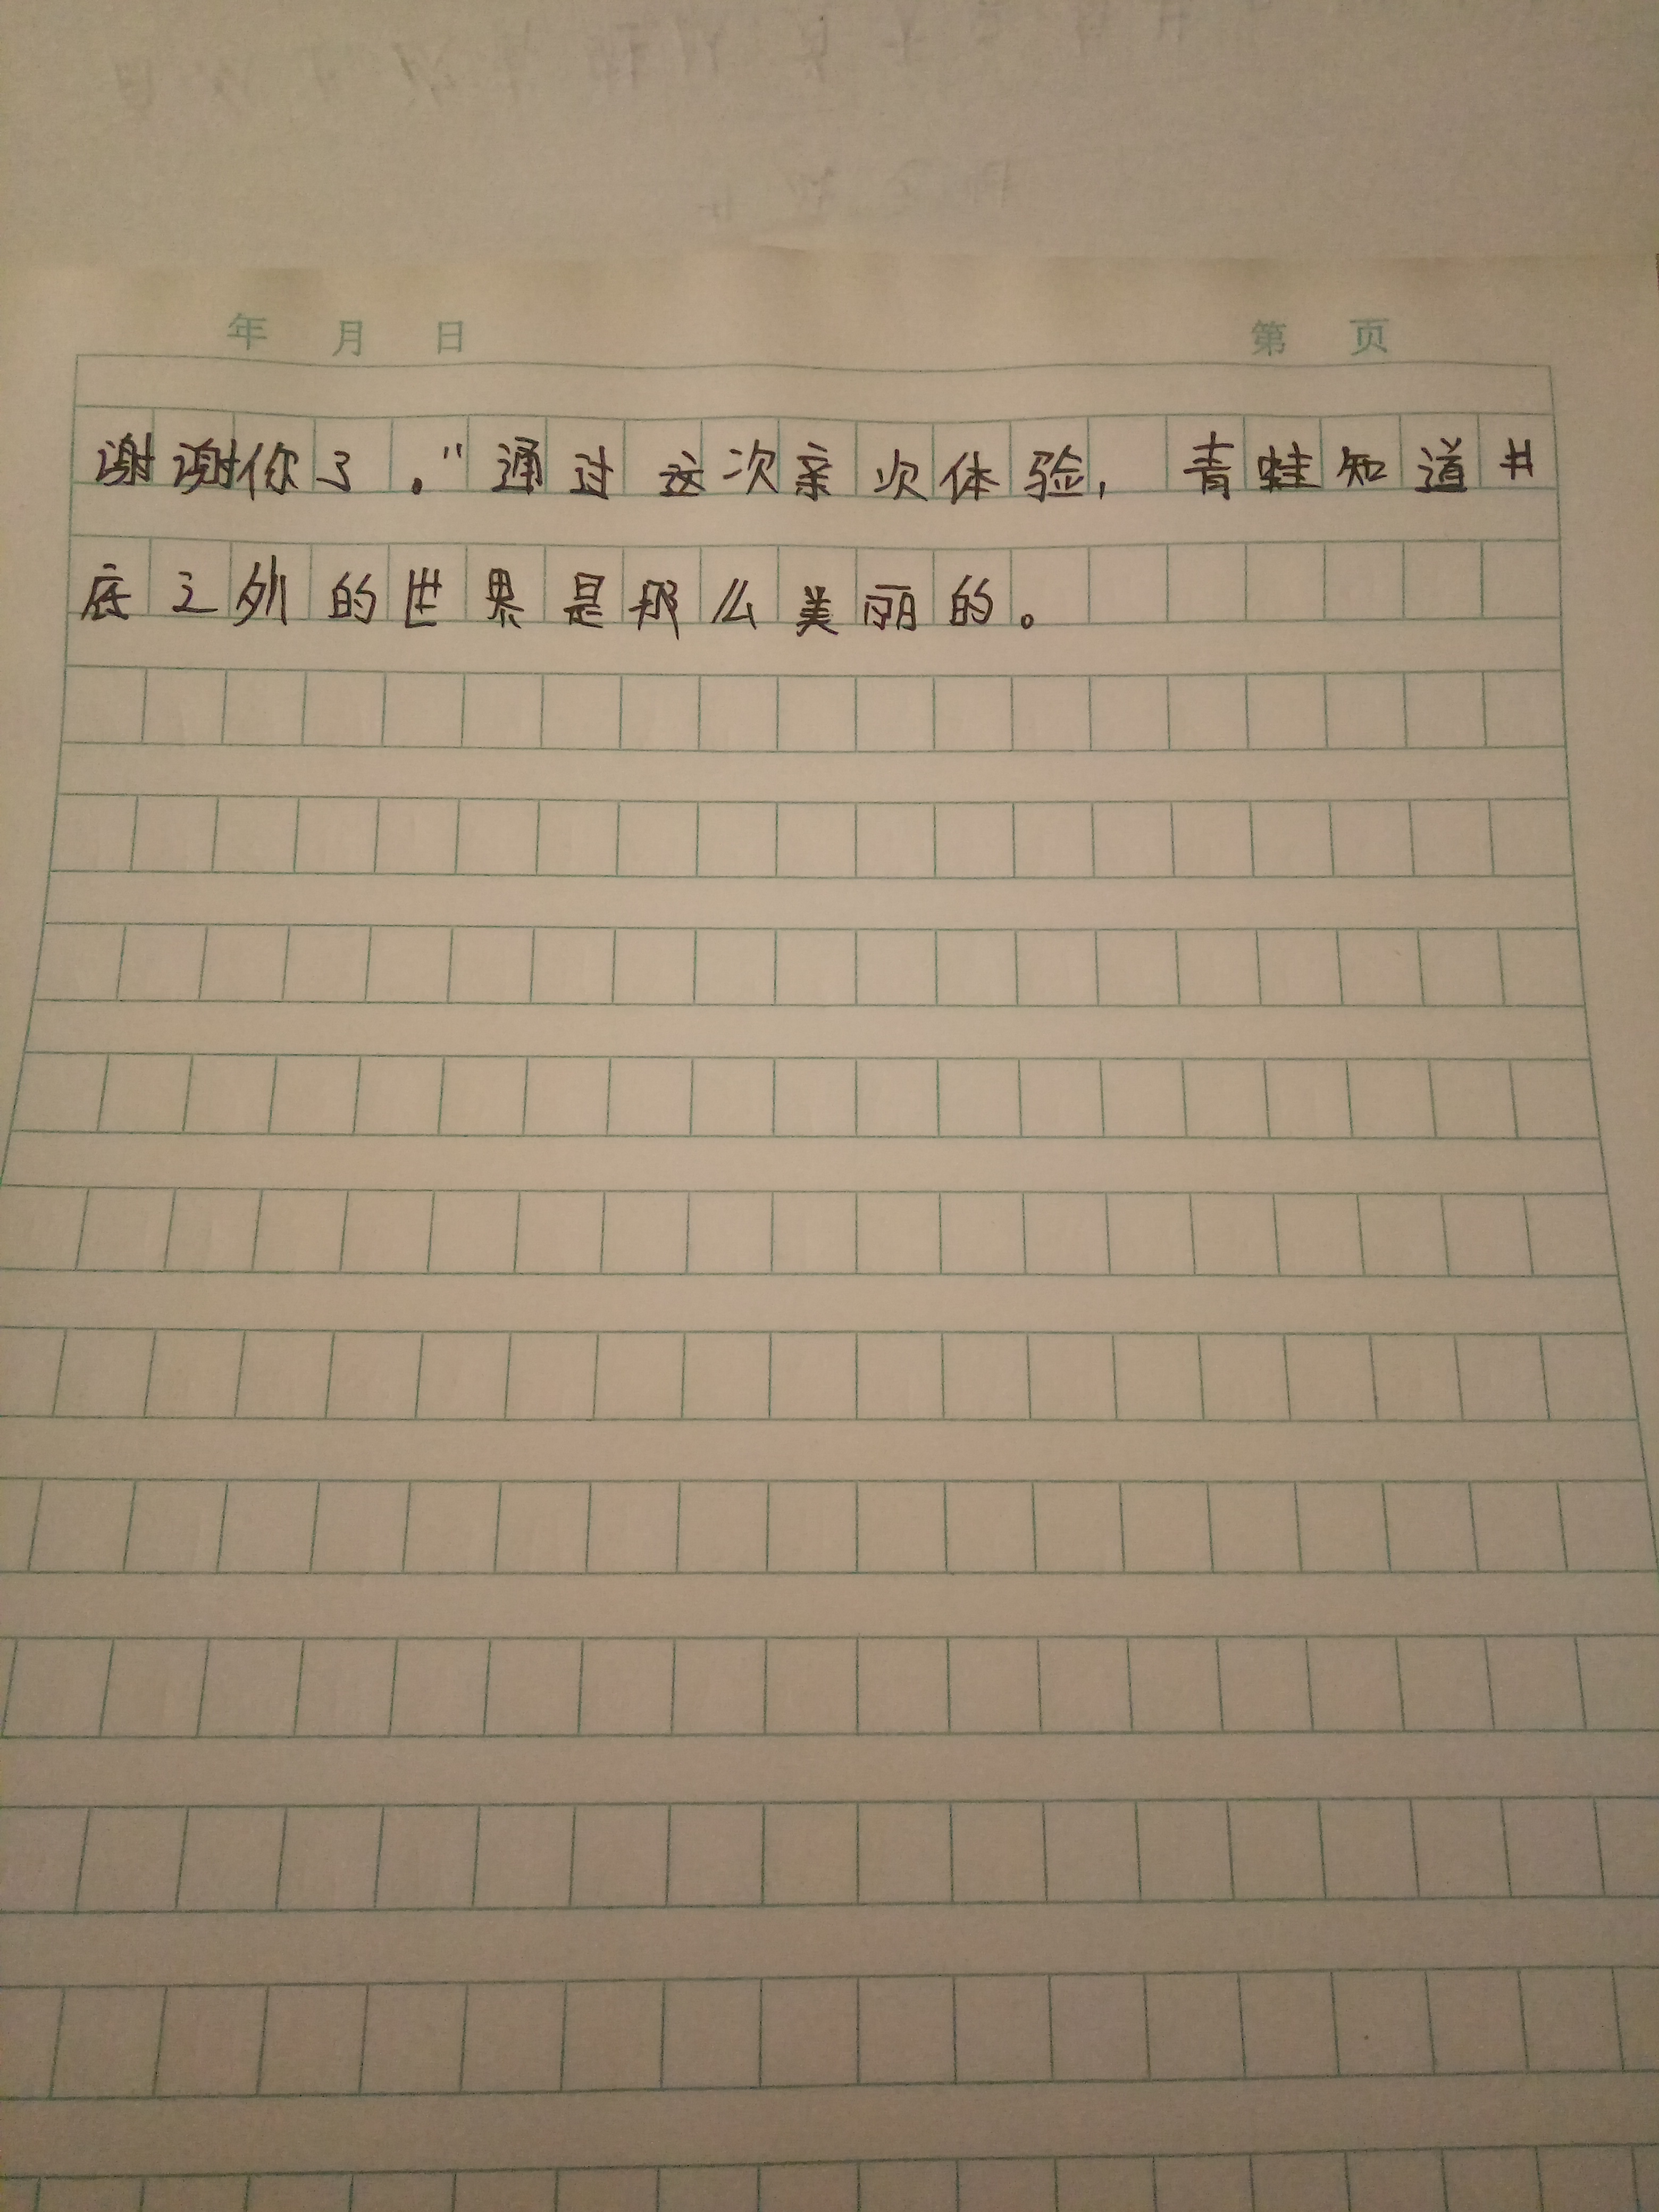 年 月 日 第 页
谢谢你了。"通过这次亲次体验,青蛙知道井
底之外的世界是那么美丽的。